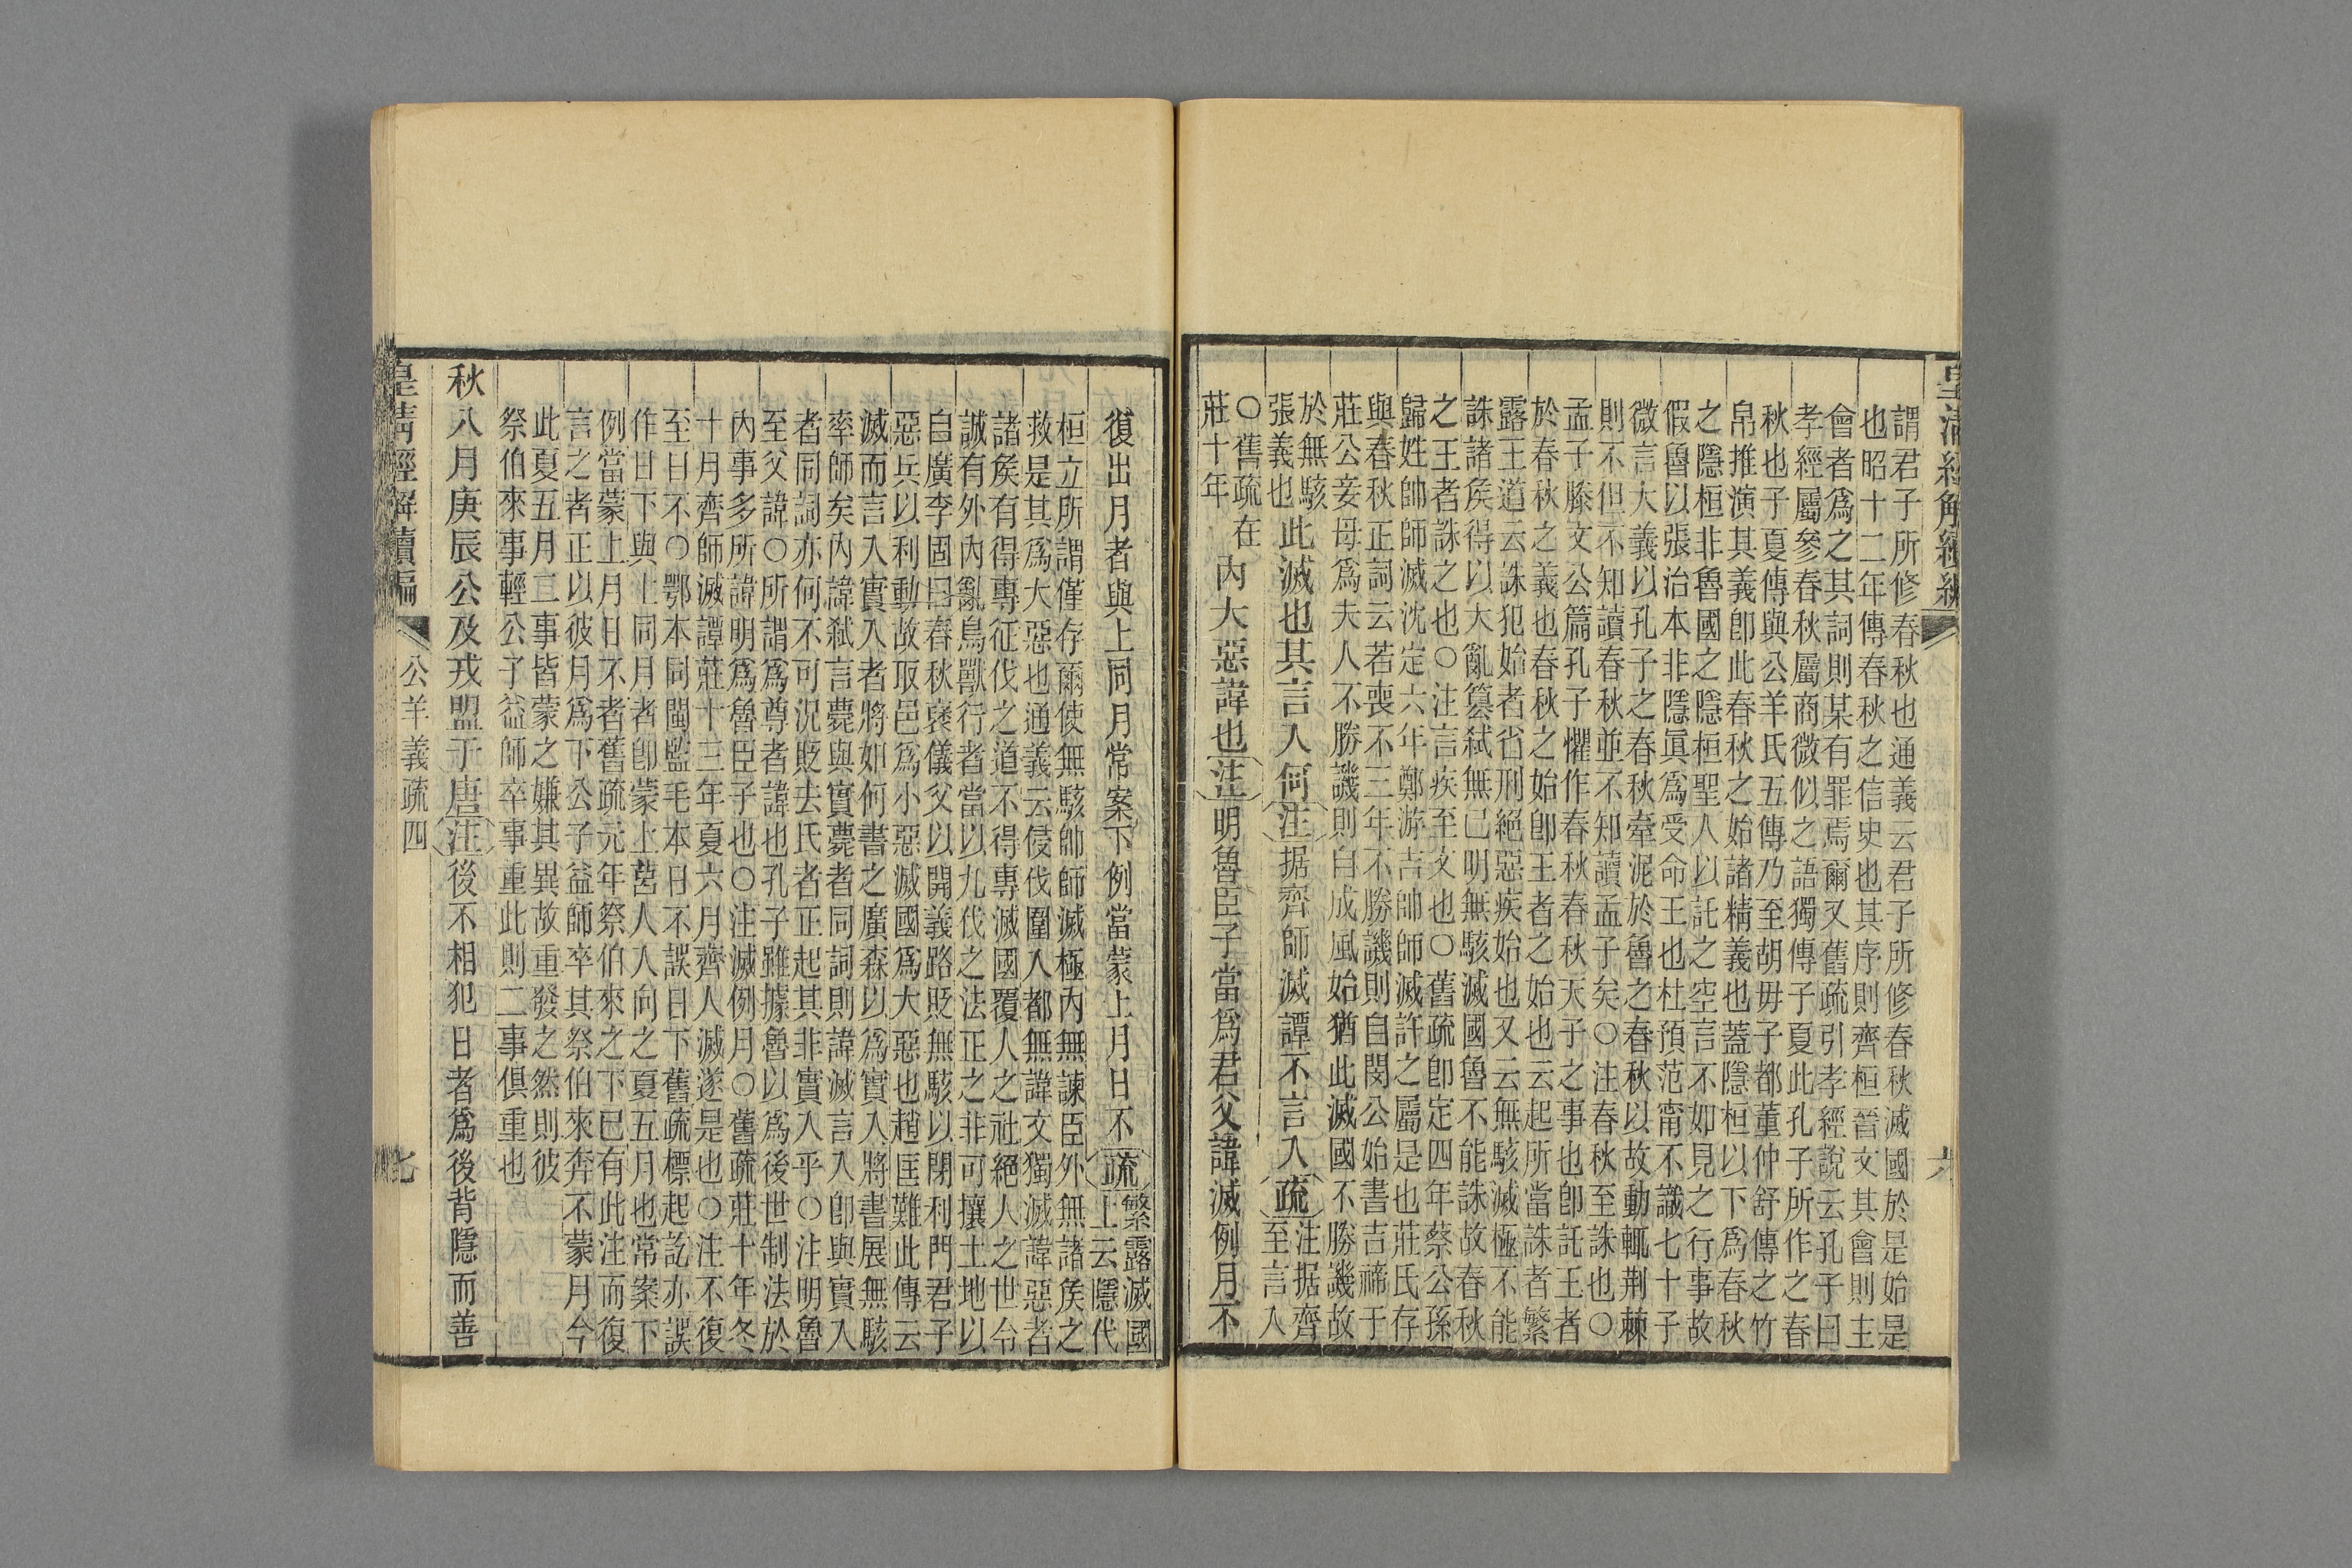 皇清經解續編
六
謂君子所修春秋也通義云君子所修春秋滅國於是始是
也昭十二年傳春秋之信史也其序則齊桓晉文其會則主
會者爲之其詞則某有罪焉爾又舊疏引孝經說云孔子曰
孝經屬參春秋屬商微似之語獨傳子夏此孔子所作之春
秋也子夏傳與公羊氏五傳乃至胡毋子都董仲舒傳之竹
帛推演其義卽此春秋之始諸精義也蓋隱桓以下爲春秋
之隱桓非魯國之隱桓聖人以託之空言不如見之行事故
假魯以張治本非隱眞爲受命王也杜預范甯不識七十子
微言大義以孔子之春秋牽泥於魯之春秋以故動輒荆棘
則不但不知讀春秋並不知讀孟子矣○注春秋至誅也○
孟子滕文公篇孔子懼作春秋春秋天子之事也卽託王者
於春秋之義也春秋之始卽王者之始也云起所當誅者繁
露王道云誅犯始者省刑絕惡疾始也又云無駭滅極不能
誅諸矦得以大亂篡弒無已明無駭滅國魯不能誅故春秋
之王者誅之也○注言疾至文也○舊疏卽定四年蔡公孫
歸姓帥師滅沈定六年鄭游吉帥師滅許之屬是也莊氏存
與春秋正詞云若喪不三年不勝譏則自閔公始書吉禘于
莊公妾母爲夫人不勝譏則自成風始猶此滅國不勝譏故
於無駭
張義也
此滅也其言入何注据齊師滅譚不言入疏
注据齊
至言入
○舊疏在
莊十年
內大惡諱也注明魯臣子當爲君父諱滅例月不
復出月者與上同月常案下例當蒙上月日不疏
繁露滅國
上云隱代
桓立所謂僅存爾使無駭帥師滅極內無諫臣外無諸矦之
救是其爲大惡也通義云侵伐圍入都無諱文獨滅諱惡者
諸矦有得專征伐之道不得專滅國覆人之社絕人之世今
誠有外內亂鳥獸行者當以九伐之法正之非可攘土地以
自廣李固曰春秋襃儀父以開義路貶無駭以閉利門君子
惡兵以利動故取邑爲小惡滅國爲大惡也趙匡難此傳云
滅而言入實入者將如何書之廣森以爲實入將書展無駭
率師矣內諱弒言薨與實薨者同詞則諱滅言入卽與實入
者同詞亦何不可況貶去氏者正起其非實入乎○注明魯
至父諱○所謂爲尊者諱也孔子雖據魯以爲後世制法於
內事多所諱明爲魯臣子也○注滅例月○舊疏莊十年冬
十月齊師滅譚莊十三年夏六月齊人滅遂是也○注不復
至日不○鄂本同閩監毛本日不誤日下舊疏標起訖亦誤
作日下與上同月者卽蒙上莒人入向之夏五月也常案下
例當蒙上月日不者舊疏元年祭伯來之下已有此注而復
言之者正以彼月爲下公子益師卒其祭伯來奔不蒙月今
此夏五月二事皆蒙之嫌其異故重發之然則彼
祭伯來事輕公子益師卒事重此則二事俱重也
秋八月庚辰公及戎盟于唐注後不相犯日者爲後背隱而善
皇清經解續編
公羊義疏四
七